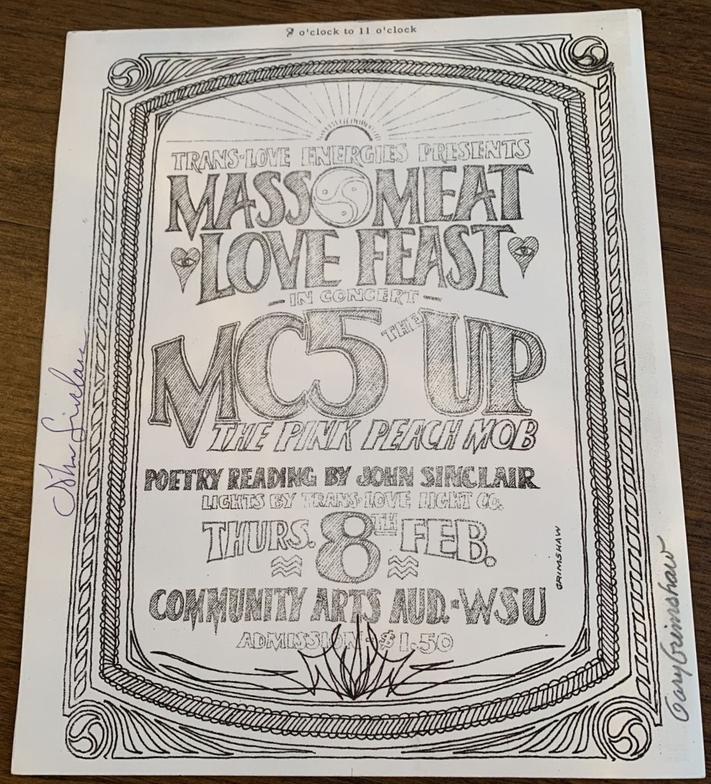 8 o'clock to 11 o'clock
TRANS-LOVE ENERGIES PRESENTS
MASS MEAT
LOVE FEAST
- IN CONCERT -
MC5 THE UP
THE PINK PEACH MOB
POETRY READING BY JOHN SINCLAIR
LIGHTS BY TRANS-LOVE LIGHT CO.
THURS. 8TH FEB.
COMMUNITY ARTS AUD.-WSU
ADMISSION-$1.50
GRIMSHAW
John Sinclair
Gary Grimshaw